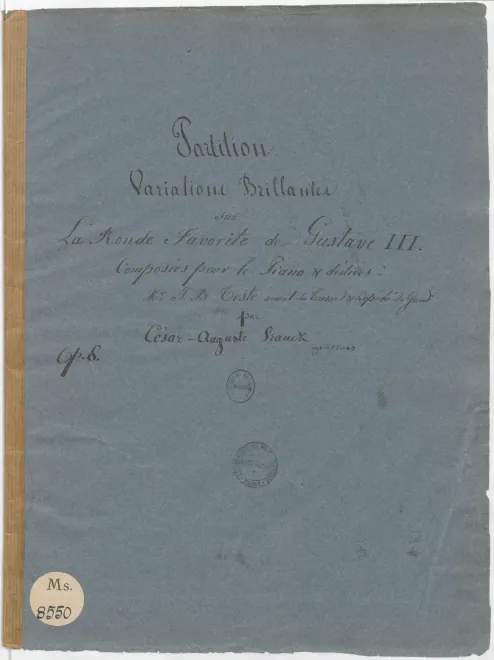 Partition
Variations Brillantes
sur
La Ronde Favorite de Gustave III.
Composées pour le Piano & dédiées à
Mr. J. B. Teste
par
César-Auguste Franck
Op. 8.
Ms.
8550